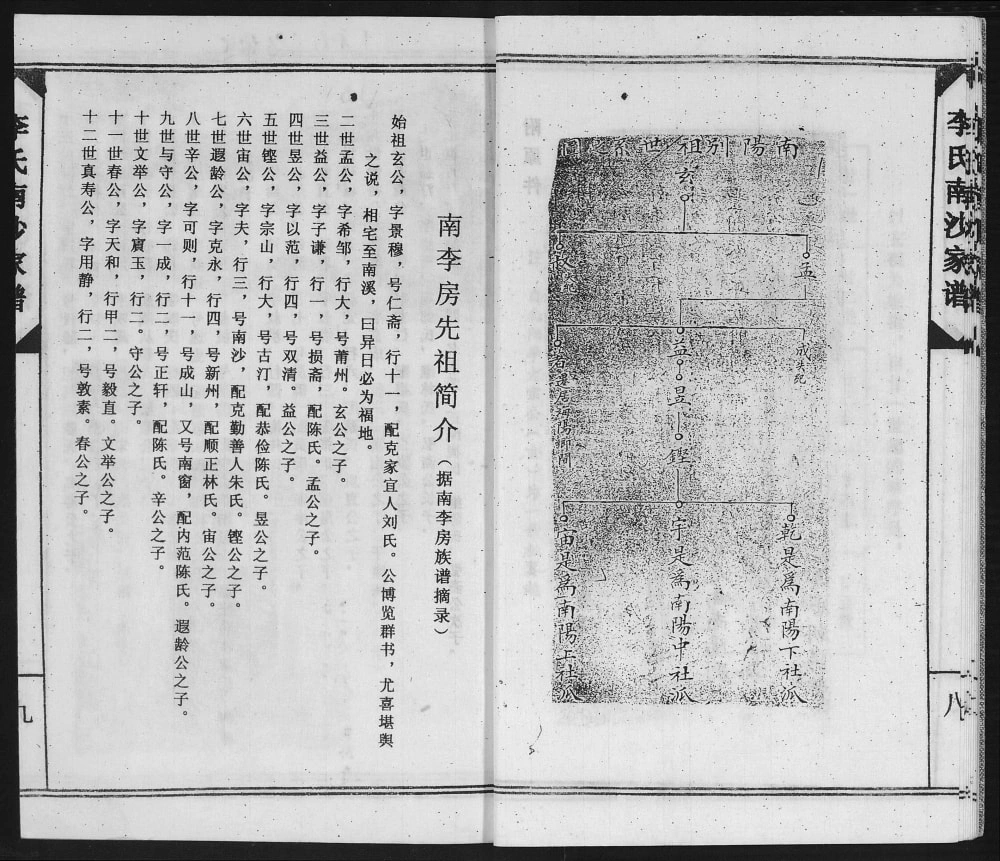 李氏南沙家谱
八
南陽別祖世系圖
玄
孟
益
成失記
昱
鏗
乾是為南陽下社派
宇是為南陽中社派
宙是為南陽上社派
南李房先祖简介(据南李房族谱摘录)
始祖玄公,字景穆,号仁斋,行十一,配克家宜人刘氏。公博览群书,尤喜堪舆
之说,相宅至南溪,曰异日必为福地。
二世孟公,字希邹,行大,号莆州。玄公之子。
三世益公,字子谦,行一,号损斋,配陈氏。孟公之子。
四世昱公,字以范,行四,号双清。益公之子。
五世铿公,字宗山,行大,号古汀,配恭俭陈氏。昱公之子。
六世宙公,字夫,行三,号南沙,配克勤善人朱氏。铿公之子。
七世遐龄公,字克永,行四,号新州,配顺正林氏。宙公之子。
八世辛公,字可则,行十一,号成山,又号南窗,配内范陈氏。遐龄公之子。
九世与守公,字一成,行二,号正轩,配陈氏。辛公之子。
十世文举公,字賔玉,行二。守公之子。
十一世春公,字天和,行甲二,号毅直。文举公之子。
十二世真寿公,字用静,行二,号敦素。春公之子。
李氏南沙家谱
九